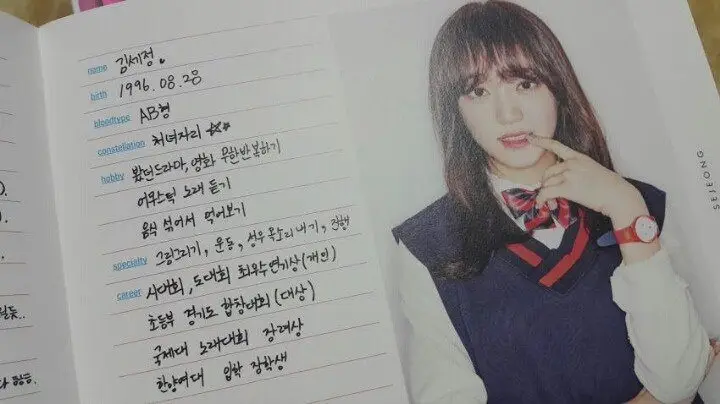 name 김세정.
birth 1996. 08. 28
bloodtype AB형
constellation 처녀자리 ☆☆
hobby 봤던드라마, 영화 무한반복하기
어쿠스틱 노래 듣기
음식 섞어서 먹어보기
specialty 그림그리기, 운동, 성우 목소리 내기, 진행
career 시대회, 도대회 최우수연기상(개인)
초등부 경기도 합창대회(대상)
국제대 노래대회 장려상
한양여대 입학 장학생
SEJEONG